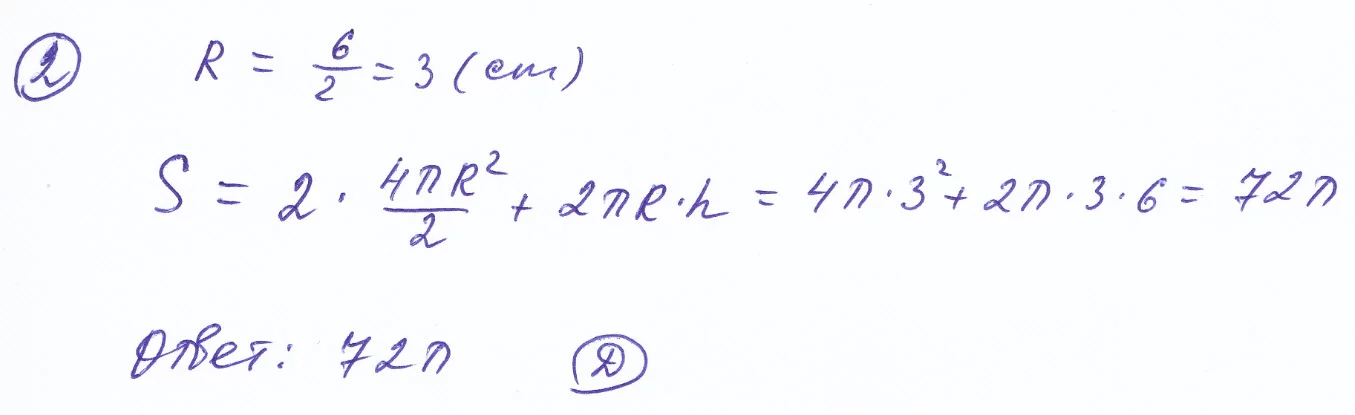 ② R = 6/2 = 3 (cm)
S = 2 · 4πR²/2 + 2πR·h = 4π·3² + 2π·3·6 = 72π
Ответ: 72π Ⓓ